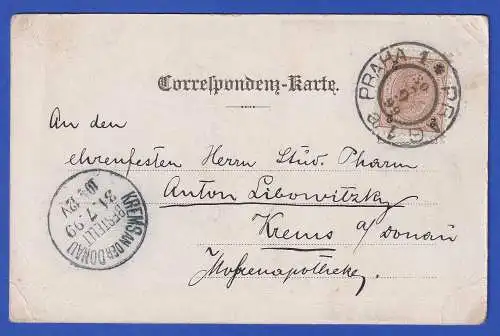 PRAG 1 * PRAHA 1
Correspondenz-Karte.
An den
ehrenfesten Herrn Stud. Pharm
Anton Libowitzky
Krems a/Donau
Mohrenapotheke
KREMS AN DER DONAU
BESTELLT
31 7 99